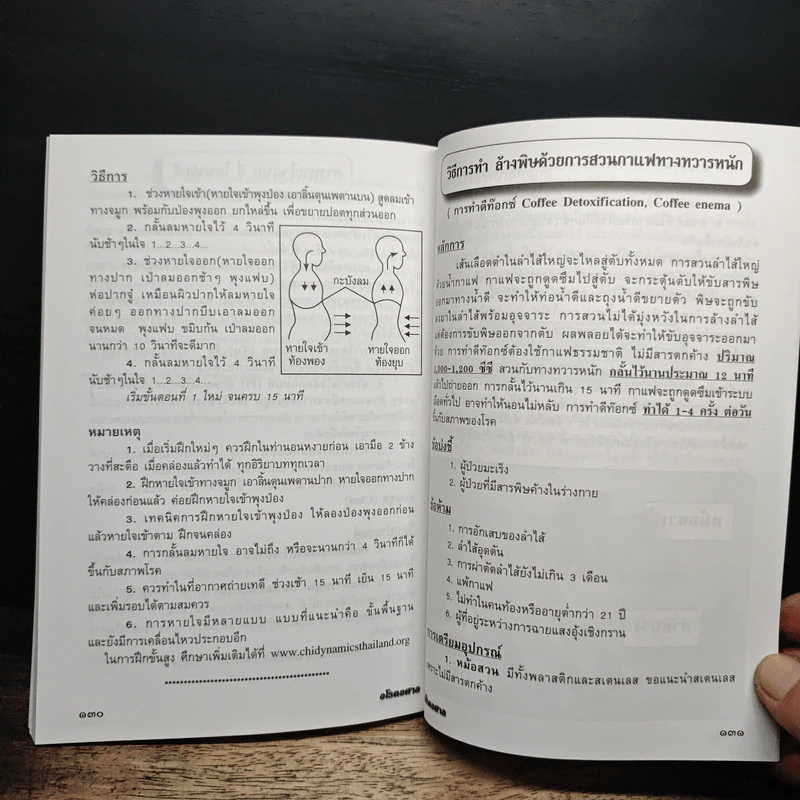 วิธีการ
1. ช่วงหายใจเข้า(หายใจเข้าพุงป่อง เอาลิ้นดุนเพดานบน) สูดลมเข้า
ทางจมูก พร้อมกับป่องพุงออก ยกไหล่ขึ้น เพื่อขยายปอดทุกส่วนออก
2. กลั้นลมหายใจไว้ 4 วินาที
นับช้าๆในใจ 1...2...3...4...
3. ช่วงหายใจออก(หายใจออก
ทางปาก เป่าลมออกช้าๆ พุงแฟบ)
ห่อปากจู๋ เหมือนผิวปากให้ลมหายใจ
ค่อยๆ ออกทางปากบีบเอาลมออก
จนหมด พุงแฟบ ขมิบก้น เป่าลมออก
นานกว่า 10 วินาทีจะดีมาก
4. กลั้นลมหายใจไว้ 4 วินาที
นับช้าๆในใจ 1...2...3...4...
เริ่มขั้นตอนที่ 1 ใหม่ จนครบ 15 นาที
กะบังลม
หายใจเข้า
ท้องพอง
หายใจออก
ท้องยุบ
หมายเหตุ
1. เมื่อเริ่มฝึกใหม่ๆ ควรฝึกในท่านอนหงายก่อน เอามือ 2 ข้าง
วางที่สะดือ เมื่อคล่องแล้วทำได้ ทุกอิริยาบททุกเวลา
2. ฝึกหายใจเข้าทางจมูก เอาลิ้นดุนเพดานปาก หายใจออกทางปาก
ให้คล่องก่อนแล้ว ค่อยฝึกหายใจเข้าพุงป่อง
3. เทคนิคการฝึกหายใจเข้าพุงป่อง ให้ลองป่องพุงออกก่อน
แล้วหายใจเข้าตาม ฝึกจนคล่อง
4. การกลั้นลมหายใจ อาจไม่ถึง หรือจะนานกว่า 4 วินาทีก็ได้
ขึ้นกับสภาพโรค
5. ควรทำในที่อากาศถ่ายเทดี ช่วงเช้า 15 นาที เย็น 15 นาที
และเพิ่มรอบได้ตามสมควร
6. การหายใจมีหลายแบบ แบบที่แนะนำคือ ขั้นพื้นฐาน
และยังมีการเคลื่อนไหวประกอบอีก
ในการฝึกขั้นสูง ศึกษาเพิ่มเติมได้ที่ www.chidynamicsthailand.org
๑๓๐
อโรคยศาล
วิธีการทำ ล้างพิษด้วยการสวนกาแฟทางทวารหนัก
( การทำดีท๊อกซ์ Coffee Detoxification, Coffee enema )
หลักการ
เส้นเลือดดำในลำไส้ใหญ่จะไหลสู่ตับทั้งหมด การสวนลำไส้ใหญ่
ด้วยน้ำกาแฟ กาแฟจะถูกดูดซึมไปสู่ตับ จะกระตุ้นตับให้ขับสารพิษ
ออกมาทางน้ำดี จะทำให้ท่อน้ำดีและถุงน้ำดีขยายตัว พิษจะถูกขับ
ลงมาในลำไส้พร้อมอุจจาระ การสวนไม่ได้มุ่งหวังในการล้างลำไส้
แต่ต้องการขับพิษออกจากตับ ผลพลอยได้จะทำให้ขับอุจจาระออกมา
ด้วย การทำดีท๊อกซ์ต้องใช้กาแฟธรรมชาติ ไม่มีสารตกค้าง ปริมาณ
1,000-1,200 ซีซี สวนกับทางทวารหนัก กลั้นไว้นานประมาณ 12 นาที
แล้วไปถ่ายออก การกลั้นไว้นานเกิน 15 นาที กาแฟจะถูกดูดซึมเข้าระบบ
เลือดทั่วไป อาจทำให้นอนไม่หลับ การทำดีท๊อกซ์ ทำได้ 1-4 ครั้ง ต่อวัน
ขึ้นกับสภาพของโรค
ข้อบ่งชี้
1. ผู้ป่วยมะเร็ง
2. ผู้ป่วยที่มีสารพิษค้างในร่างกาย
ข้อห้าม
1. การอักเสบของลำไส้
2. ลำไส้อุดตัน
3. การผ่าตัดลำไส้ยังไม่เกิน 3 เดือน
4. แพ้กาแฟ
5. ไม่ทำในคนท้องหรืออายุต่ำกว่า 21 ปี
6. ผู้ที่อยู่ระหว่างการฉายแสงอุ้งเชิงกราน
การเตรียมอุปกรณ์
1. หม้อสวน มีทั้งพลาสติกและสเตนเลส ขอแนะนำสเตนเลส
เพราะไม่มีสารตกค้าง
๑๓๑